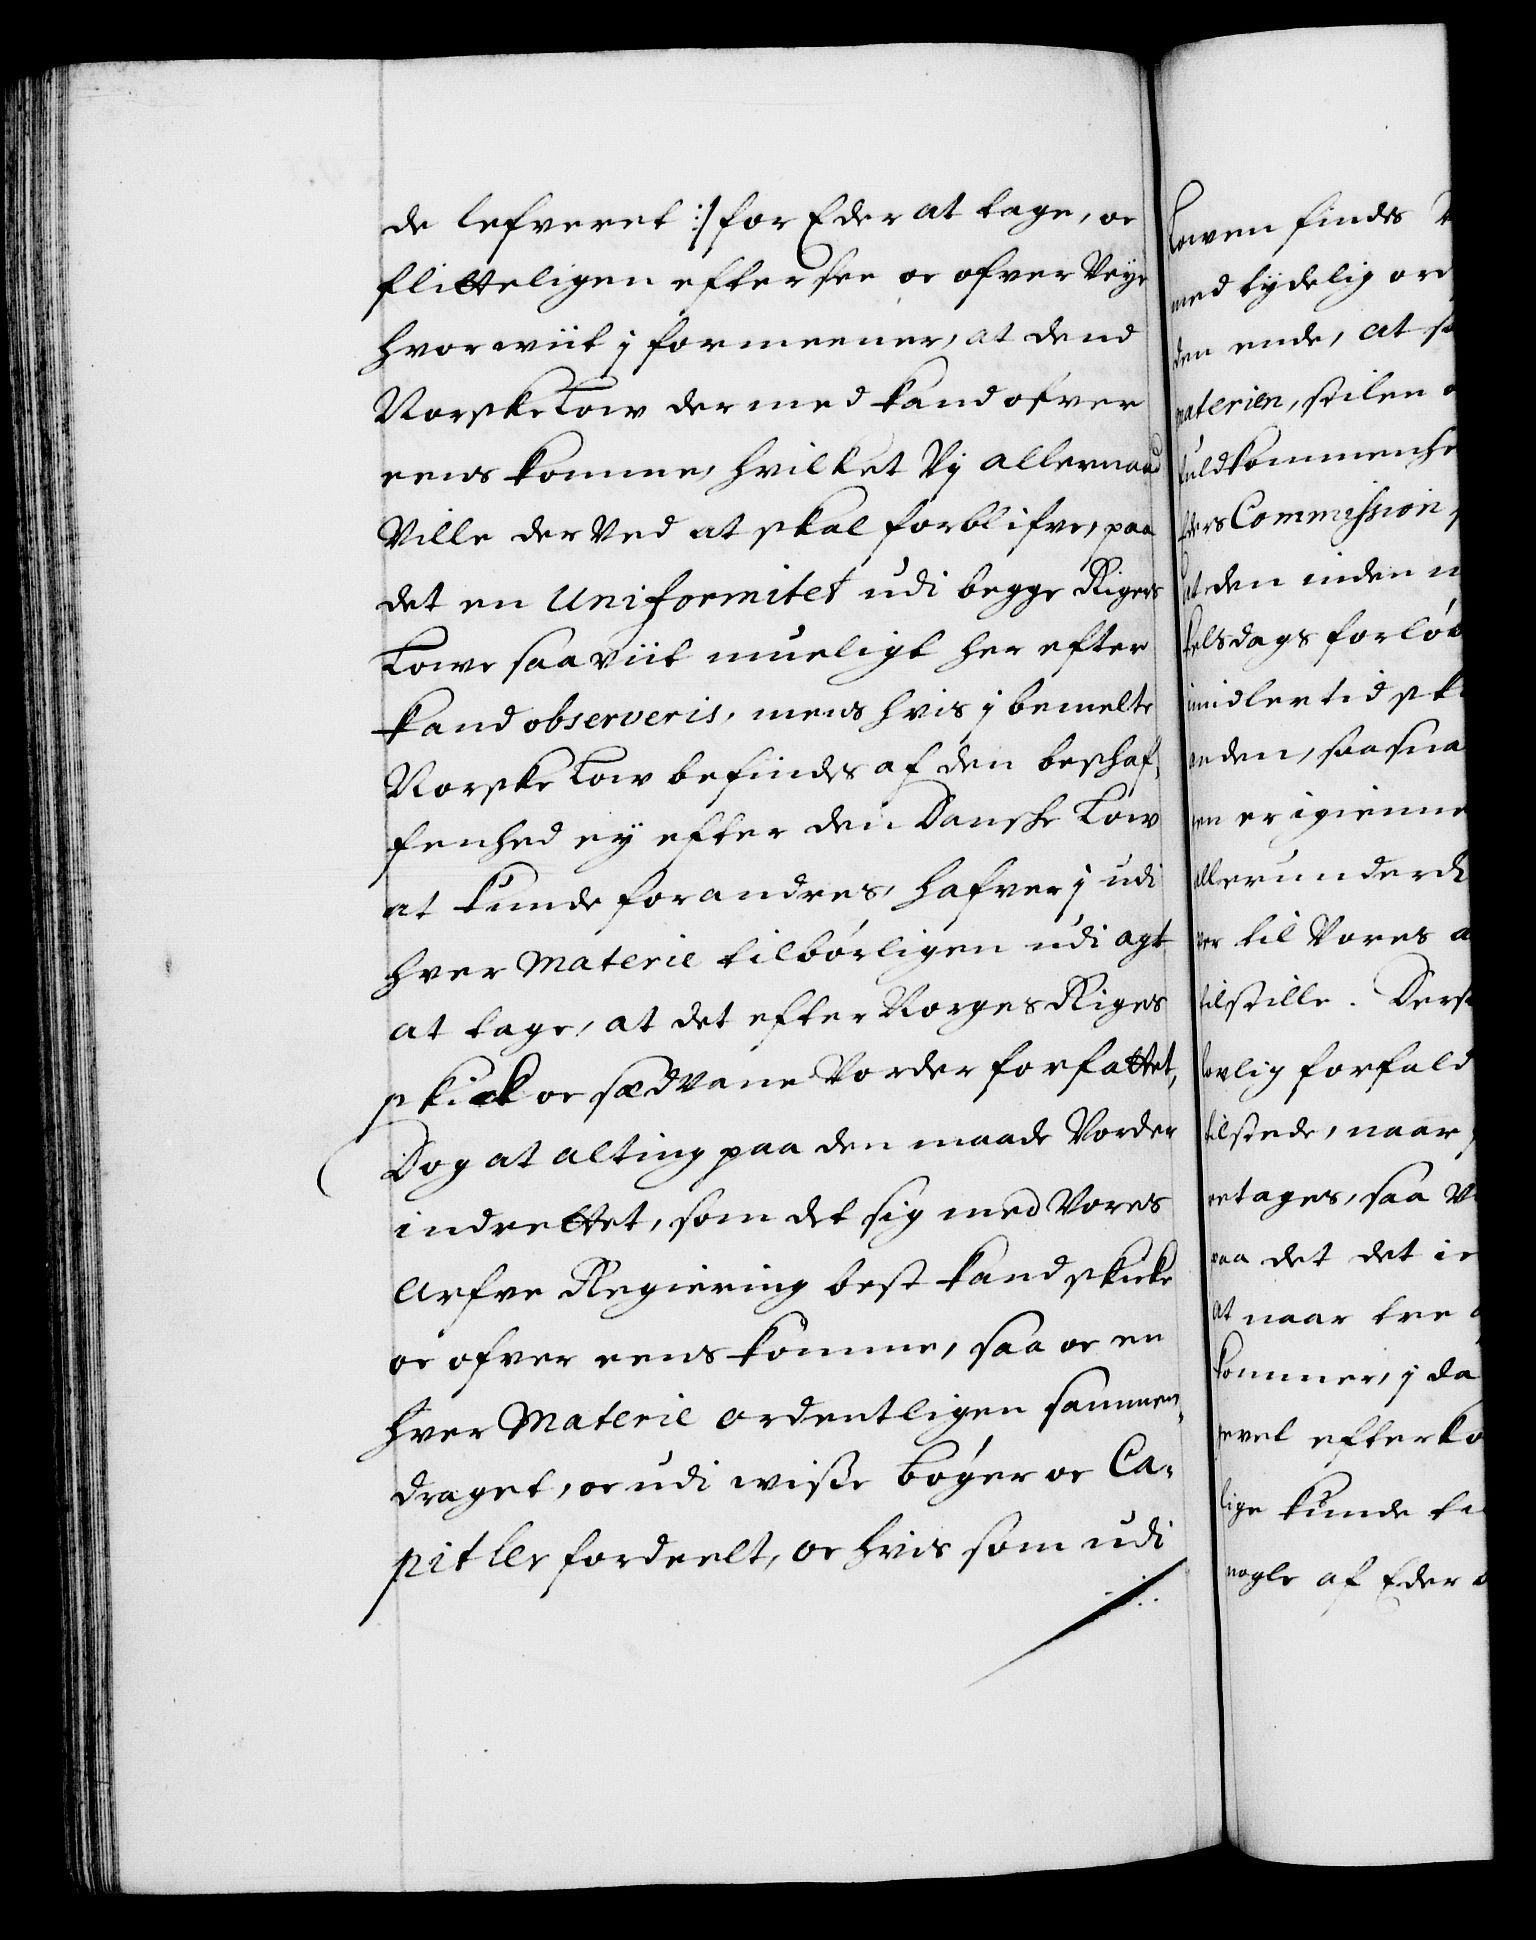 de lefveret :/ for Eder at tage, oc
flitteligen eftersee oc ofver Veye
hvor wiit j formeener, at dend
Norske Low dermed kand ofver
eens komme, hvilket Vj allernaad
Ville der Ved at skal forblifve, paa
det en Uniformitet udi begge Rigers
Lowe saaviit mueligt her efter
kand observeris, mens hvis j bemelte
Norske Low befindes af den beschaf,
fenhed ey efter den Danske Low
at kunde forandres, hafver j udi
hver Materie tilbørligen udi agt
at tage, at det efter Norges Riges
skick oc sædvane Vorder forfattet,
Dog at alting paa den maade Vorder
indrettet, som det sig med Vores
Arfve Regiering best kand skicke
oc ofver eens komme, saa oc en
hver Materie ordentligen sammen,
draget, oc udi wisse bøger oc Ca-
pitler fordeelt, oc hvis som udi
Lowen findes
med tydelig ord
den ende, at
materien, stilen
fuldkommenhe
Eders Commission
at den inden
kelsdags forløb
imidlertid sk
enden, saasna
en er igienne
allerunderd
ver til Vores a
tilstille. Ders
lowlig forfald
tilstede, naar
retages, saa
paa det det
at naar tre
kommer, j da
gevel efterko
lige kunde
nogle af Eder